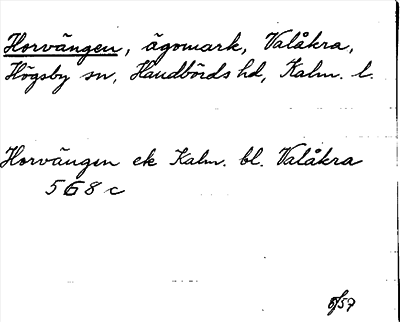 Horvängen, ägomark, Valåkra,
Högsby sn, Handbörds hd, Kalm. l.
Horvängen ek Kalm. bl. Valåkra
568 c
6/57